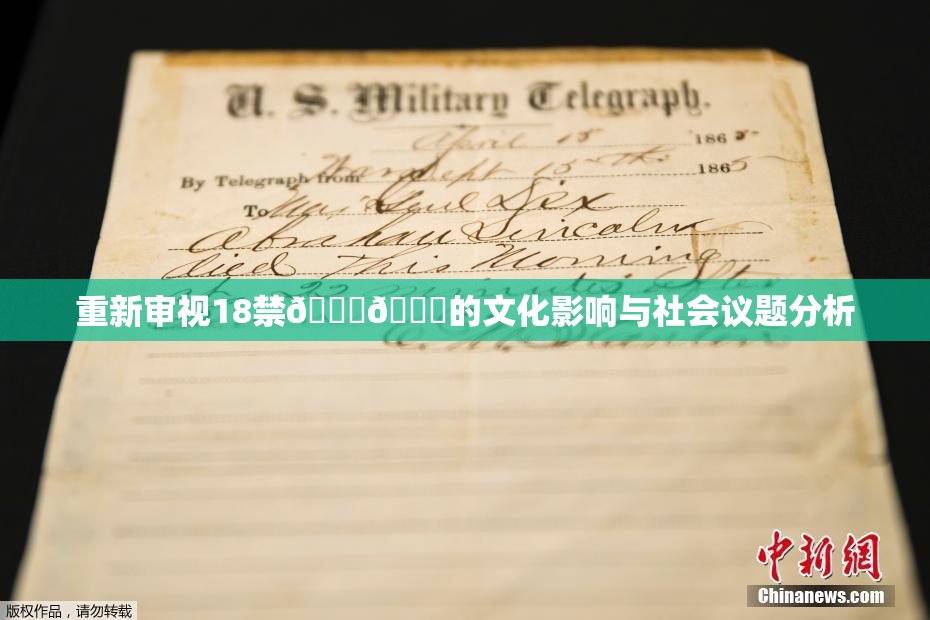 U. S. Military Telegraph.
April 15 1865
By Telegraph from War Dept 15th 1865
To Maj Genl Dix
Abraham Lincoln
died this Morning
at 22 minutes after
重新审视18禁ð ð 的文化影响与社会议题分析
E. M. Stanton
中新网
Chinanews.com
版权作品,请勿转载